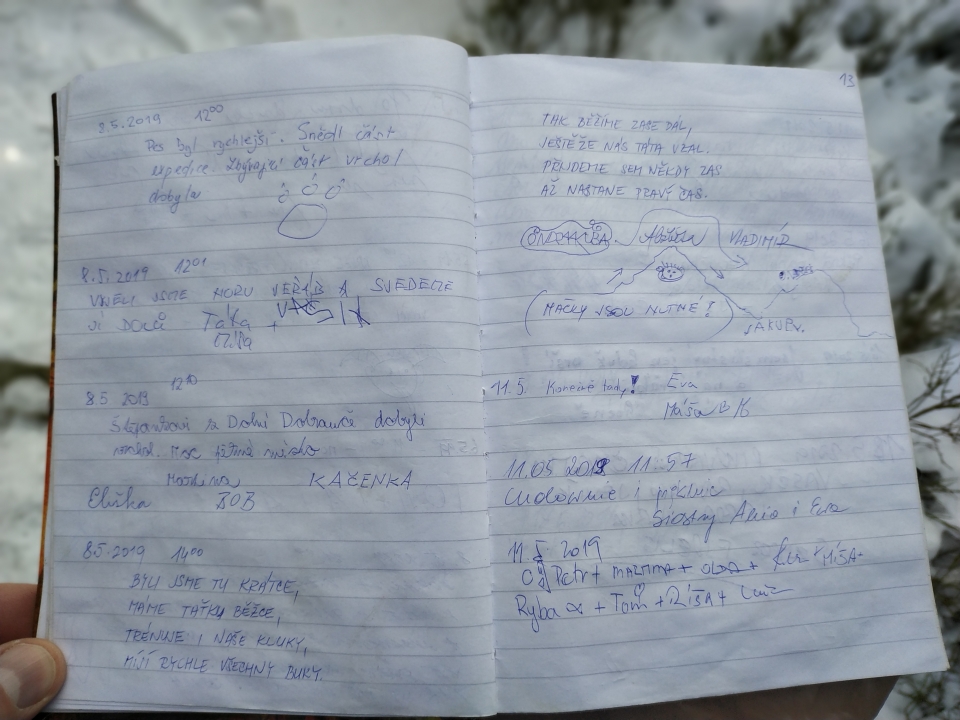 8.5.2019 12⁰⁰
Pes byl rychlejší. Snědl část
expedice. Zbývající část vrchol
dobyla
8.5.2019 12⁰¹
VYNESLI JSME NORU VEŘÁB A SVEDEME
JÍ DOLŮ Táťa +
8.5 2019 12¹⁰
Štěpánkovi z Dolní Dobrouče dobyli
vrchol. Moc pěkné místo
Martina KAČENKA
Eliška BOB
8.5.2019 14⁰⁰
BYLI JSME TU KRÁTCE,
MÁME TAŤKU BĚŽCE,
TRÉNUJE I NAŠE KLUKY,
MÍJÍ RYCHLE VŠECHNY BUKY.
13
TAK BĚŽÍME ZASE DÁL,
JEŠTĚŽE NÁS TÁTA VZAL.
PŘIJDEME SEM NĚKDY ZAS
AŽ NASTANE PRAVÝ ČAS.
VLADIMÍR
(MAČKY JSOU NUTNÉ!)
JAKUB.
11.5. Konečně tady! Eva
Máša B K
11.05 2019 11:57
Cudownie i pięknie
Siostry Ania i Ewa
11.5 2019
Petr + MARTINA + OLDA + + MÍŠA +
Ryba + Tom + RÍŠA +